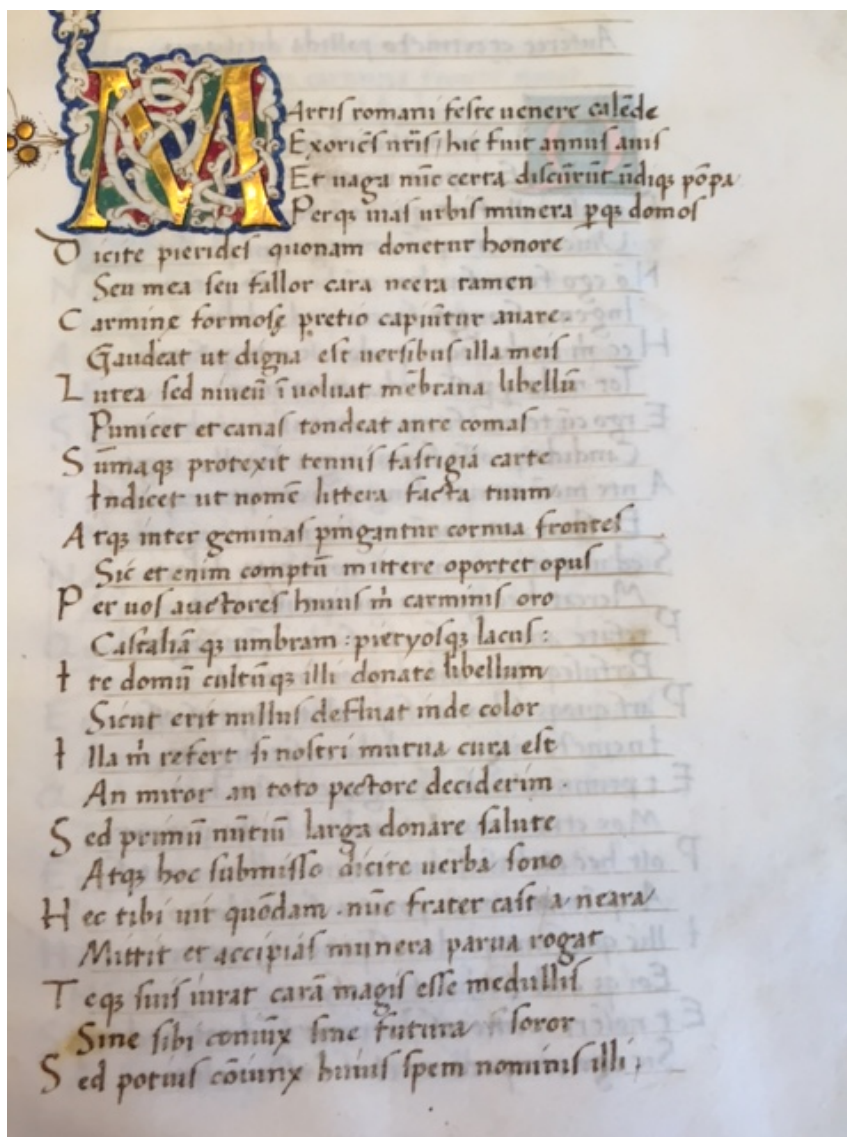 Martis romani feste uenere calēde
Exoriēs nr̄is hic fuit annus auis
Et uaga nūc certa discūrūt ūdiqꝫ pōpa
Perqꝫ uias urbis munera ꝑqꝫ domos
Dicite pierideſ quonam donetur honore
Seu mea ſeu fallor cara neera tamen
Carmine formoſę pretio capiūtur auare.
Gaudeat ut digna eſt uerſibus illa meis
Lutea ſed niueū ī uoluat mēbrana libellū
Punicet et canaſ tondeat ante comaſ
Sūmaqꝫ protexit tenuiſ faſtigia carte
Indicet ut nomē littera facta tuum
Atqꝫ inter geminaſ pingantur cornua fronteſ
Sic et enim comptū mittere oportet opuſ
Per uoſ auctoreſ huius m̄ carminiſ oro
Caſtaliā qꝫ umbram : pieryoſqꝫ lacuſ :
Ite domū cultūqꝫ illi donate libellum
Sicut erit nulluſ defluat inde color
Illa m̄ refert ſi noſtri mutua cura eſt
An miror an toto pectore deciderim
Sed primū nūtiū larga donare ſalute
Atqꝫ hoc ſubmiſſo dicite uerba ſono
Hec tibi uir quōdam . nūc frater caſt a neara
Mittit et accipiaſ munera parua rogat
Teqꝫ ſuiſ iurat carā magiſ eſſe medulliſ
Siue ſibi coniux ſiue futura ſoror
Sed potiuſ cōiunx huiuſ ſpem nominiſ illi ;